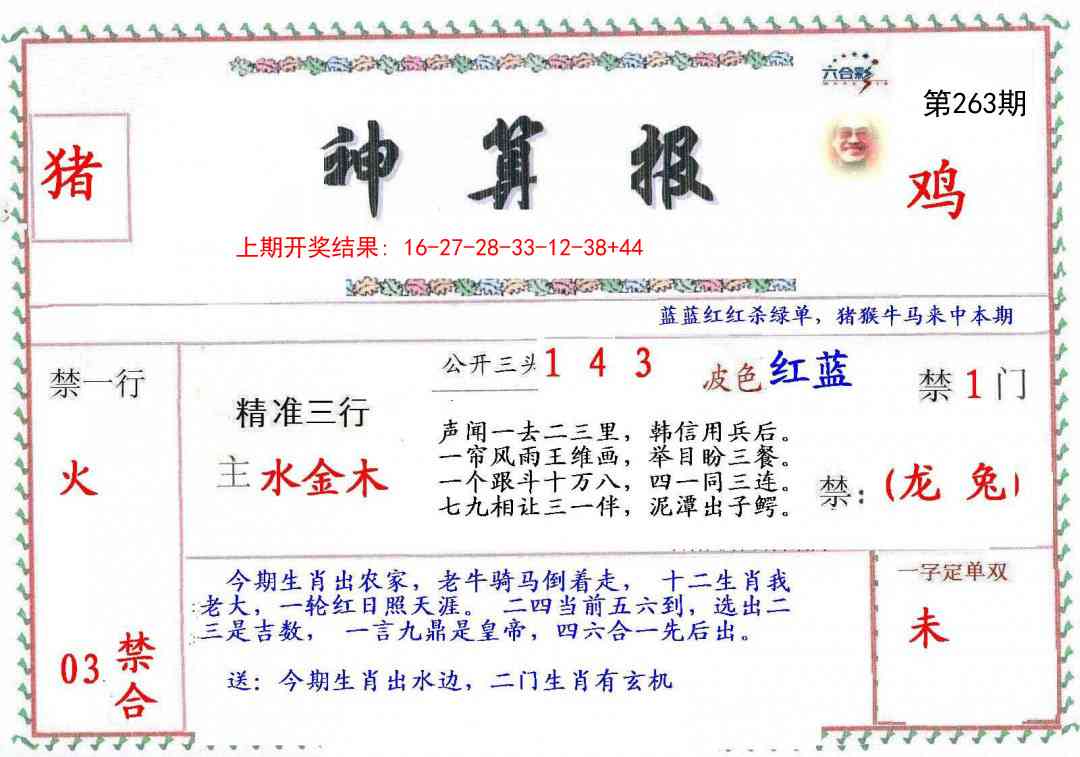 六合彩
第263期
猪
神算报
鸡
上期开奖结果：16-27-28-33-12-38+44
蓝蓝红红杀绿单，猪猴牛马来中本期
禁一行
火
03
禁合
精准三行
主 水金木
公开三头 1 4 3
波色 红蓝
禁 1 门
声闻一去二三里，韩信用兵后。
一帘风雨王维画，举目盼三餐。
一个跟斗十万八，四一同三连。
七九相让三一伴，泥潭出子鳄。
禁：(龙 兔)
今期生肖出农家，老牛骑马倒着走， 十二生肖我
老大，一轮红日照天涯。 二四当前五六到，选出二
三是吉数， 一言九鼎是皇帝，四六合一先后出。
送：今期生肖出水边，二门生肖有玄机
一字定单双
未